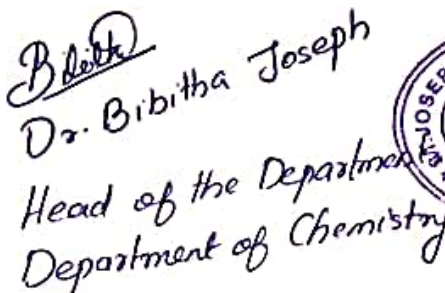 Bibitha
Dr. Bibitha Joseph
Head of the Department
Department of Chemistry
ST. JOSEP